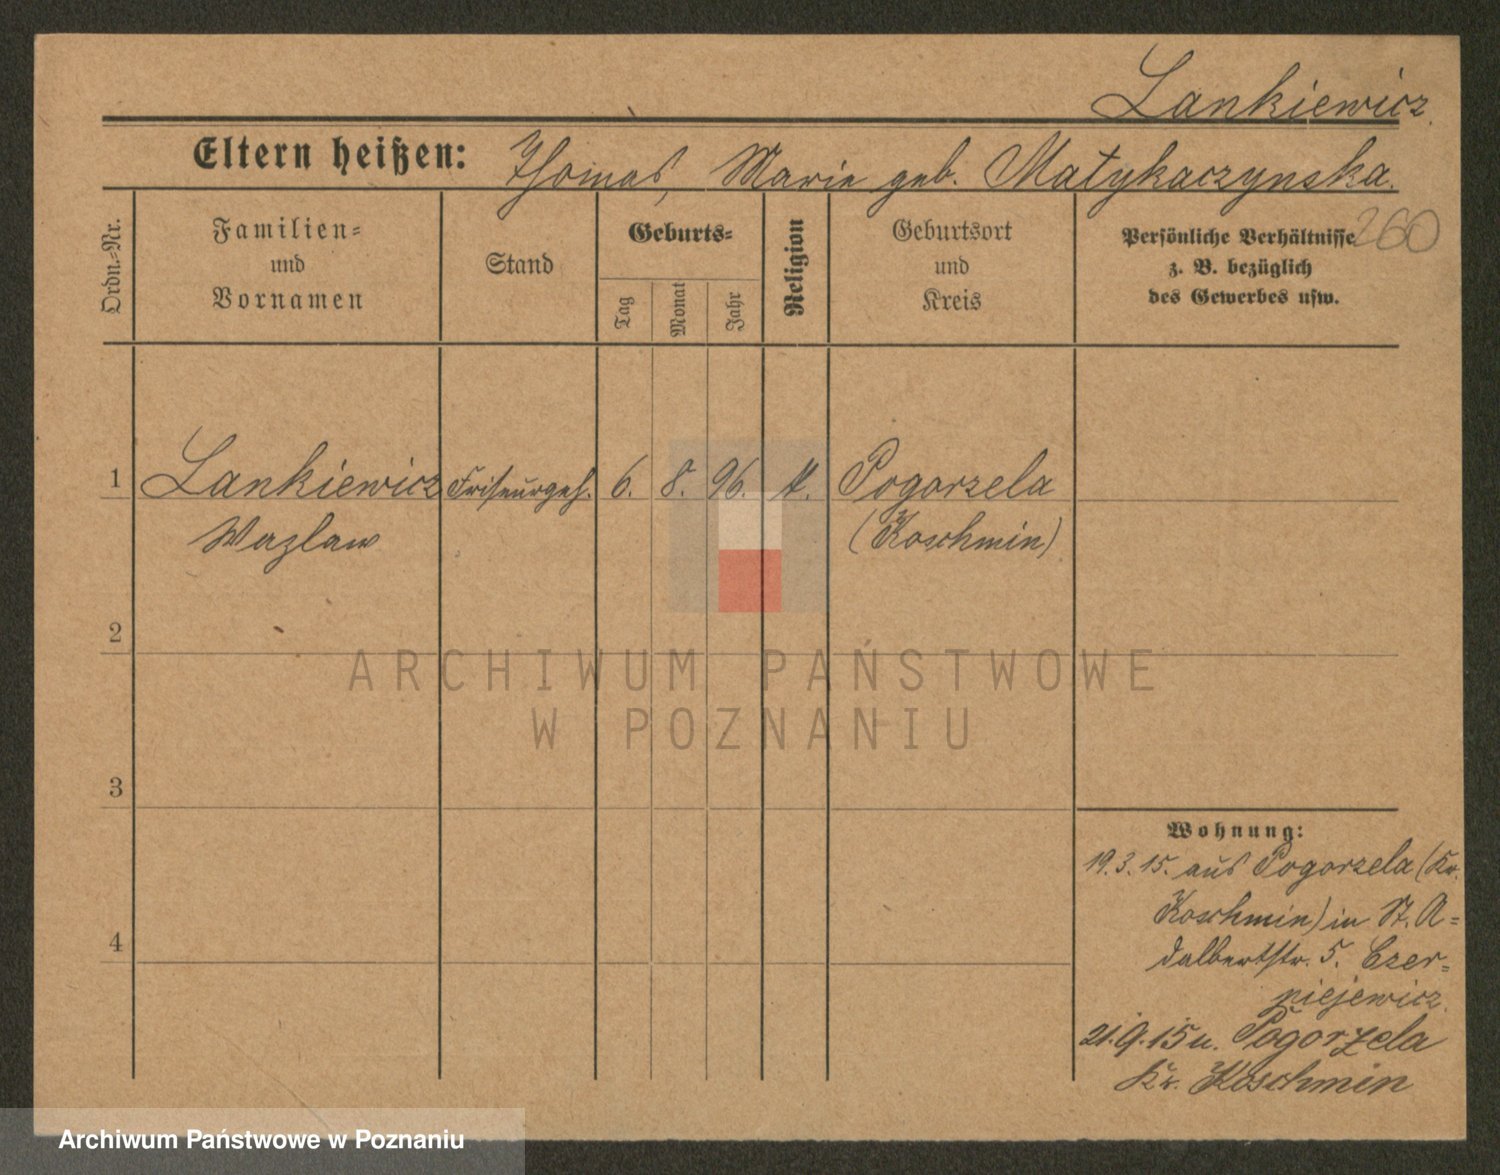 Lankiewicz.
Eltern heißen: Thomas, Marie geb. Matykaczynska.
260
Ordn.-Nr.
Familien-
und
Vornamen
Stand
Geburts-
Tag
Monat
Jahr
Religion
Geburtsort
und
Kreis
Persönliche Verhältnisse
z. B. bezüglich
des Gewerbes usw.
1 Lankiewicz Friseurgeh. 6. 8. 96. k. Pogorzela
Wazlaw (Koschmin)
2
ARCHIWUM PAŃSTWOWE
W POZNANIU
3
Wohnung:
19.3.15. aus Pogorzela (Kr.
Koschmin) in St. A-
4
dalbertstr. 5. Czer-
niejewicz.
21.9.15 n. Pogorzela
Kr. Koschmin
Archiwum Państwowe w Poznaniu